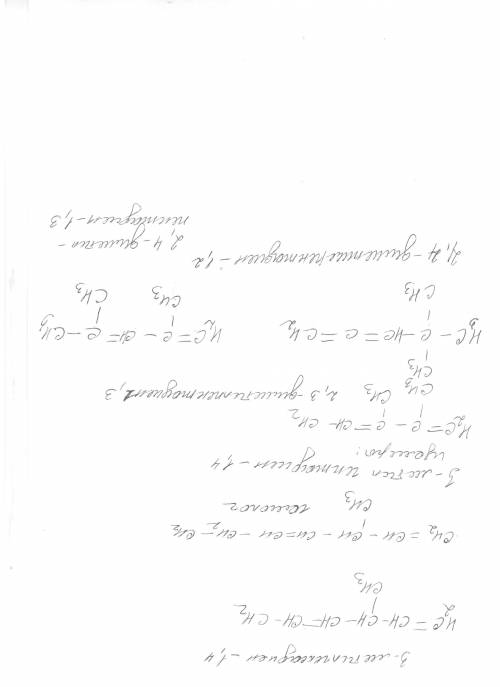 3-метилгексадиен-1,4
H2C = CH - CH - CH = CH - CH2
CH3
CH2 = CH - CH - CH = CH - CH2 - CH3
CH3 гомолог
3-метил гептадиен-1,4
изомеры:
H2C = C - C = CH - CH2
CH3 CH3
2,3-диметилпентадиен 1,3
CH3
H3C - C - HC = C = CH2
CH3
4,4-диметилпентадиен-1,2
H2C = C - CH = C - CH3
CH3 CH3
2,4-диметил-
пентадиен-1,3